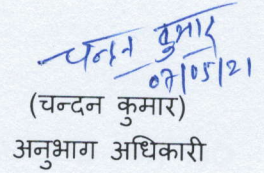 चन्दन कुमार
07/05/21
(चन्दन कुमार)
अनुभाग अधिकारी